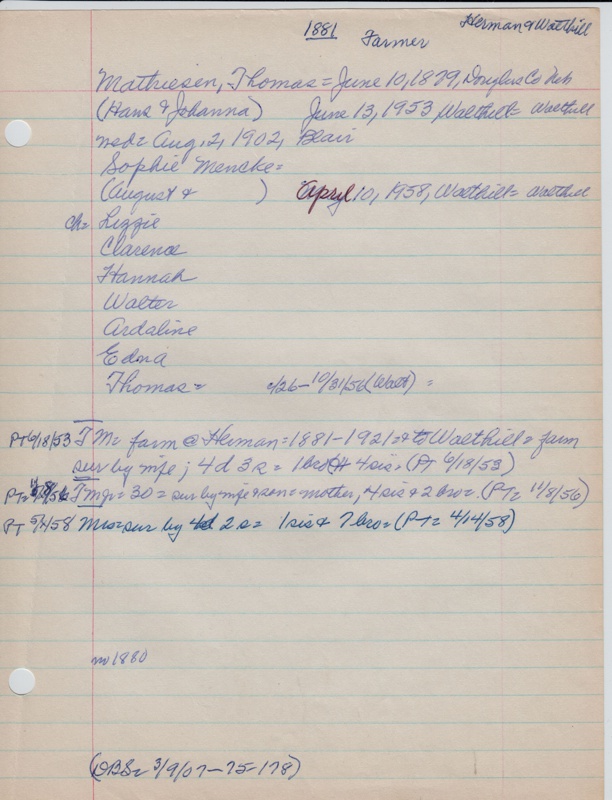 1881
Herman & Walthill
Farmer
Mathiesen, Thomas = June 10, 1879, Douglas Co Neb
(Hans & Johanna) June 13, 1953, Walthill = Walthill
med = Aug, 2, 1902, Blair
Sophie Mencke =
(August & ) April 10, 1958, Walthill = Walthill
ch = Lizzie
Clarence
Hannah
Walter
Ardaline
Edna
Thomas = /26 - 10/31/56 (Walt) =
PT 6/18/53 TM = farm @ Herman = 1881-1921 = & to Walthill = farm
sur by wife; 4 d 3 s = 1 bro & 4 sis. (PT 6/18/53)
PT = TM jr = 30 = sur by wife & son = mother, 4 sis & 2 bro = (PT = 11/8/56)
PT /58 Mrs = sur by 4d 2 s = 1 sis & 7 bro = (PT = 4/14/58)
no 1880
(DBS = 3/9/07-75-178)